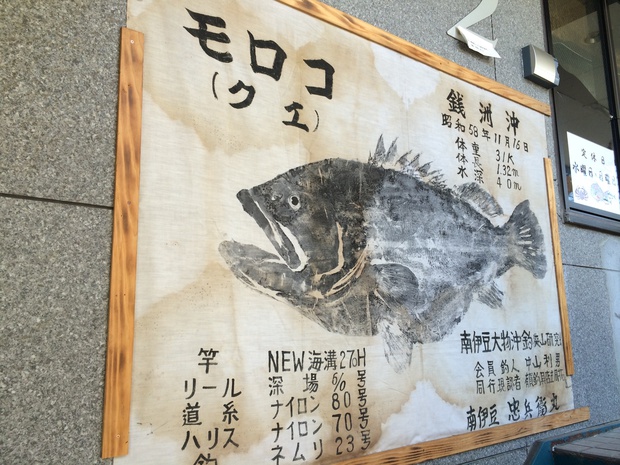 モロコ
(クエ)
銭洲沖
昭和58年11月16日
体重 31K
体長 1.32m
水深 40m
定休日
南伊豆大物沖釣
会員釣人 中山利男
南伊豆 忠兵衛丸
竿 NEW海溝270H
リール 深場6/0号
道糸 ナイロン 80号
ナイロン 70号
ハリス ナイロン
釣 ネムリ 23号